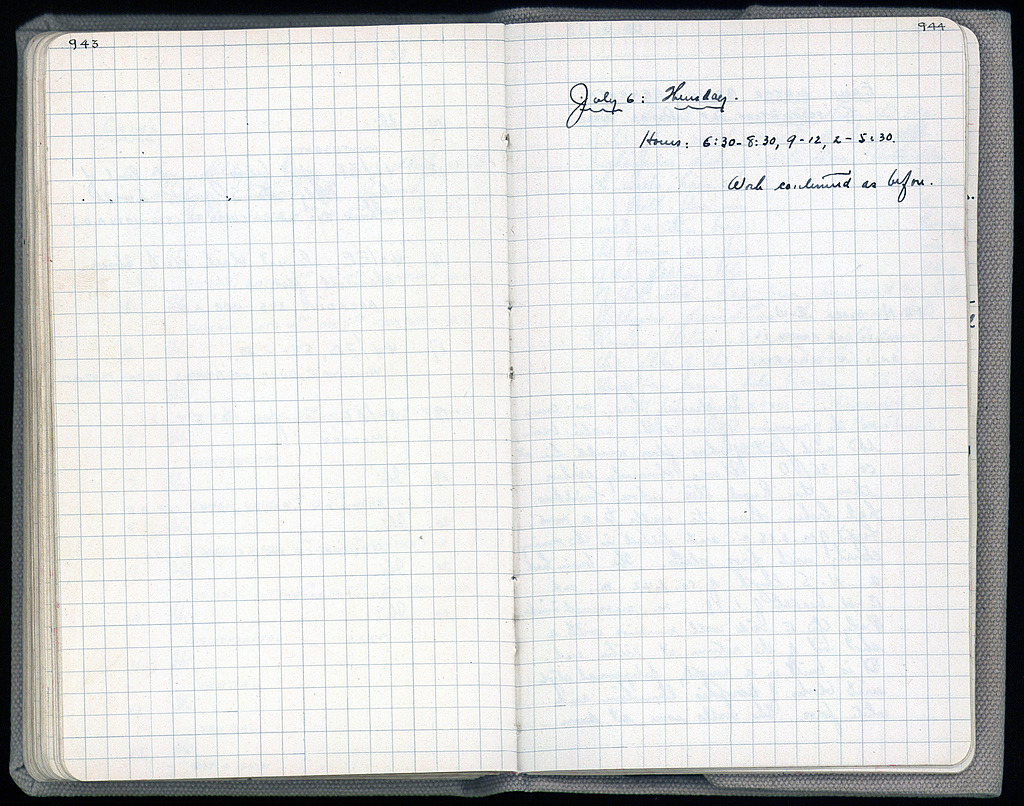 943
944
July 6: Thursday.
Hours: 6:30-8:30, 9-12, 2-5:30.
Work continued as before.